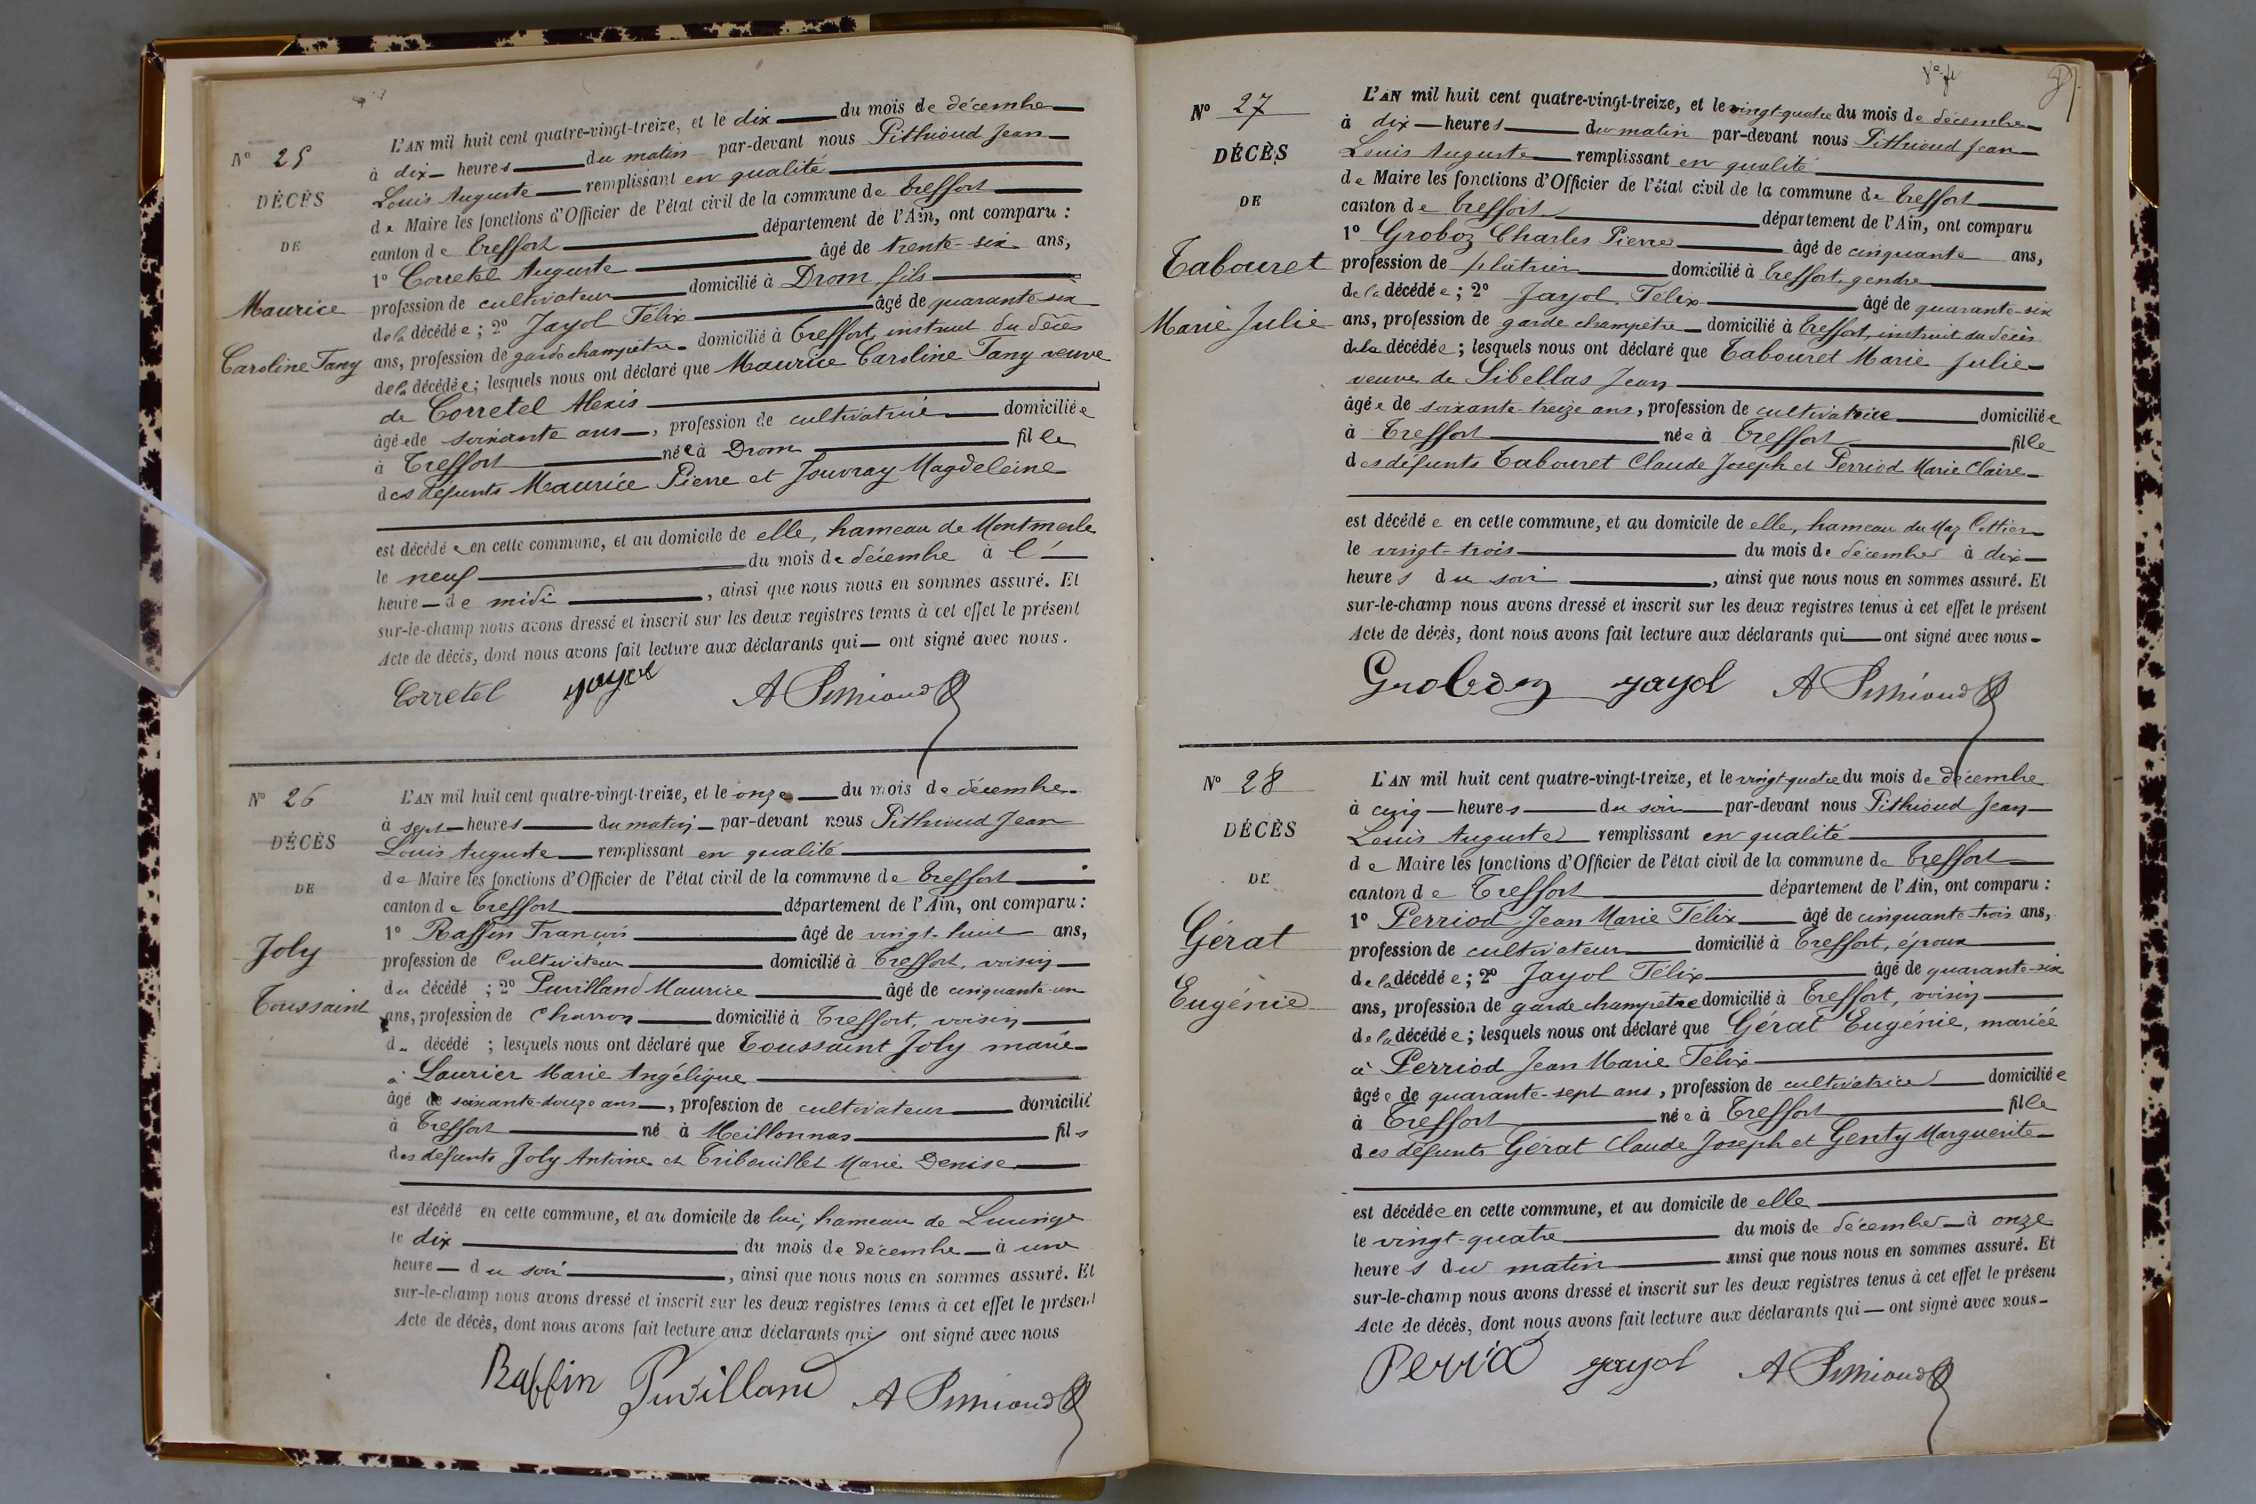 N° 25
DÉCÈS
DE
Maurice
Caroline Fany
L'AN mil huit cent quatre-vingt-treize, et le dix du mois de décembre
à dix heures du matin par-devant nous Pithioud Jean
Louis Auguste remplissant en qualité
de Maire les fonctions d'Officier de l'état civil de la commune de Treffort
canton de Treffort département de l'Ain, ont comparu :
1° Corretel Auguste âgé de trente-six ans,
profession de cultivateur domicilié à Drom, fils
de la décédée ; 2° Jayol Félix âgé de quarante-six
ans, profession de garde champêtre domicilié à Treffort, instruit du décès
de la décédée ; lesquels nous ont déclaré que Maurice Caroline Fany veuve
de Corretel Alexis
âgée de soixante ans, profession de cultivatrice domiciliée
à Treffort née à Drom fille
des défunts Maurice Pierre et Jouvray Magdeleine
est décédée en cette commune, et au domicile de elle, hameau de Montmerle
le neuf du mois de décembre à l'
heure de midi, ainsi que nous nous en sommes assuré. Et
sur-le-champ nous avons dressé et inscrit sur les deux registres tenus à cet effet le présent
Acte de décès, dont nous avons fait lecture aux déclarants qui ont signé avec nous.
Corretel Jayol A Pithioud
N° 26
DÉCÈS
DE
Joly
Toussaint
L'AN mil huit cent quatre-vingt-treize, et le onze du mois de décembre
à sept heures du matin par-devant nous Pithioud Jean
Louis Auguste remplissant en qualité
de Maire les fonctions d'Officier de l'état civil de la commune de Treffort
canton de Treffort département de l'Ain, ont comparu :
1° Raffin François âgé de vingt-huit ans,
profession de Cultivateur domicilié à Treffort, voisin
du décédé ; 2° Puvilland Maurice âgé de cinquante-un
ans, profession de Charron domicilié à Treffort, voisin
du décédé ; lesquels nous ont déclaré que Toussaint Joly marié
à Laurier Marie Angélique
âgé de soixante-douze ans, profession de cultivateur domicilié
à Treffort né à Meillonnas fils
des défunts Joly Antoine et Tribouillet Marie Denise
est décédé en cette commune, et au domicile de lui, hameau de
le dix du mois de décembre à une
heure du soir, ainsi que nous nous en sommes assuré. Et
sur-le-champ nous avons dressé et inscrit sur les deux registres tenus à cet effet le présent
Acte de décès, dont nous avons fait lecture aux déclarants qui ont signé avec nous
Raffin Puvilland A Pithioud
N° 27
DÉCÈS
DE
Tabouret
Marie Julie
L'AN mil huit cent quatre-vingt-treize, et le vingt-quatre du mois de décembre
à dix heures du matin par-devant nous Pithioud Jean
Louis Auguste remplissant en qualité
de Maire les fonctions d'Officier de l'état civil de la commune de Treffort
canton de Treffort département de l'Ain, ont comparu
1° Groboz Charles Pierre âgé de cinquante ans,
profession de plâtrier domicilié à Treffort, gendre
de la décédée ; 2° Jayol Félix âgé de quarante-six
ans, profession de garde champêtre domicilié à Treffort, instruit du décès
de la décédée ; lesquels nous ont déclaré que Tabouret Marie Julie
veuve de Sibellas Jean
âgée de soixante-treize ans, profession de cultivatrice domiciliée
à Treffort née à Treffort fille
des défunts Tabouret Claude Joseph et Perriod Marie Claire
est décédée en cette commune, et au domicile de elle, hameau du Maz Cottier
le vingt-trois du mois de décembre à dix
heures du soir, ainsi que nous nous en sommes assuré. Et
sur-le-champ nous avons dressé et inscrit sur les deux registres tenus à cet effet le présent
Acte de décès, dont nous avons fait lecture aux déclarants qui ont signé avec nous
Groboz Jayol A Pithioud
N° 28
DÉCÈS
DE
Gérat
Eugénie
L'AN mil huit cent quatre-vingt-treize, et le vingt-quatre du mois de décembre
à cinq heures du soir par-devant nous Pithioud Jean
Louis Auguste remplissant en qualité
de Maire les fonctions d'Officier de l'état civil de la commune de Treffort
canton de Treffort département de l'Ain, ont comparu :
1° Perriod Jean Marie Félix âgé de cinquante-trois ans,
profession de cultivateur domicilié à Treffort, époux
de la décédée ; 2° Jayol Félix âgé de quarante-six
ans, profession de garde champêtre domicilié à Treffort, voisin
de la décédée ; lesquels nous ont déclaré que Gérat Eugénie, mariée
à Perriod Jean Marie Félix
âgée de quarante-sept ans, profession de cultivatrice domiciliée
à Treffort née à Treffort fille
des défunts Gérat Claude Joseph et Genty Marguerite
est décédée en cette commune, et au domicile de elle
le vingt-quatre du mois de décembre à onze
heures du matin ainsi que nous nous en sommes assuré. Et
sur-le-champ nous avons dressé et inscrit sur les deux registres tenus à cet effet le présent
Acte de décès, dont nous avons fait lecture aux déclarants qui ont signé avec nous
Perriod Jayol A Pithioud